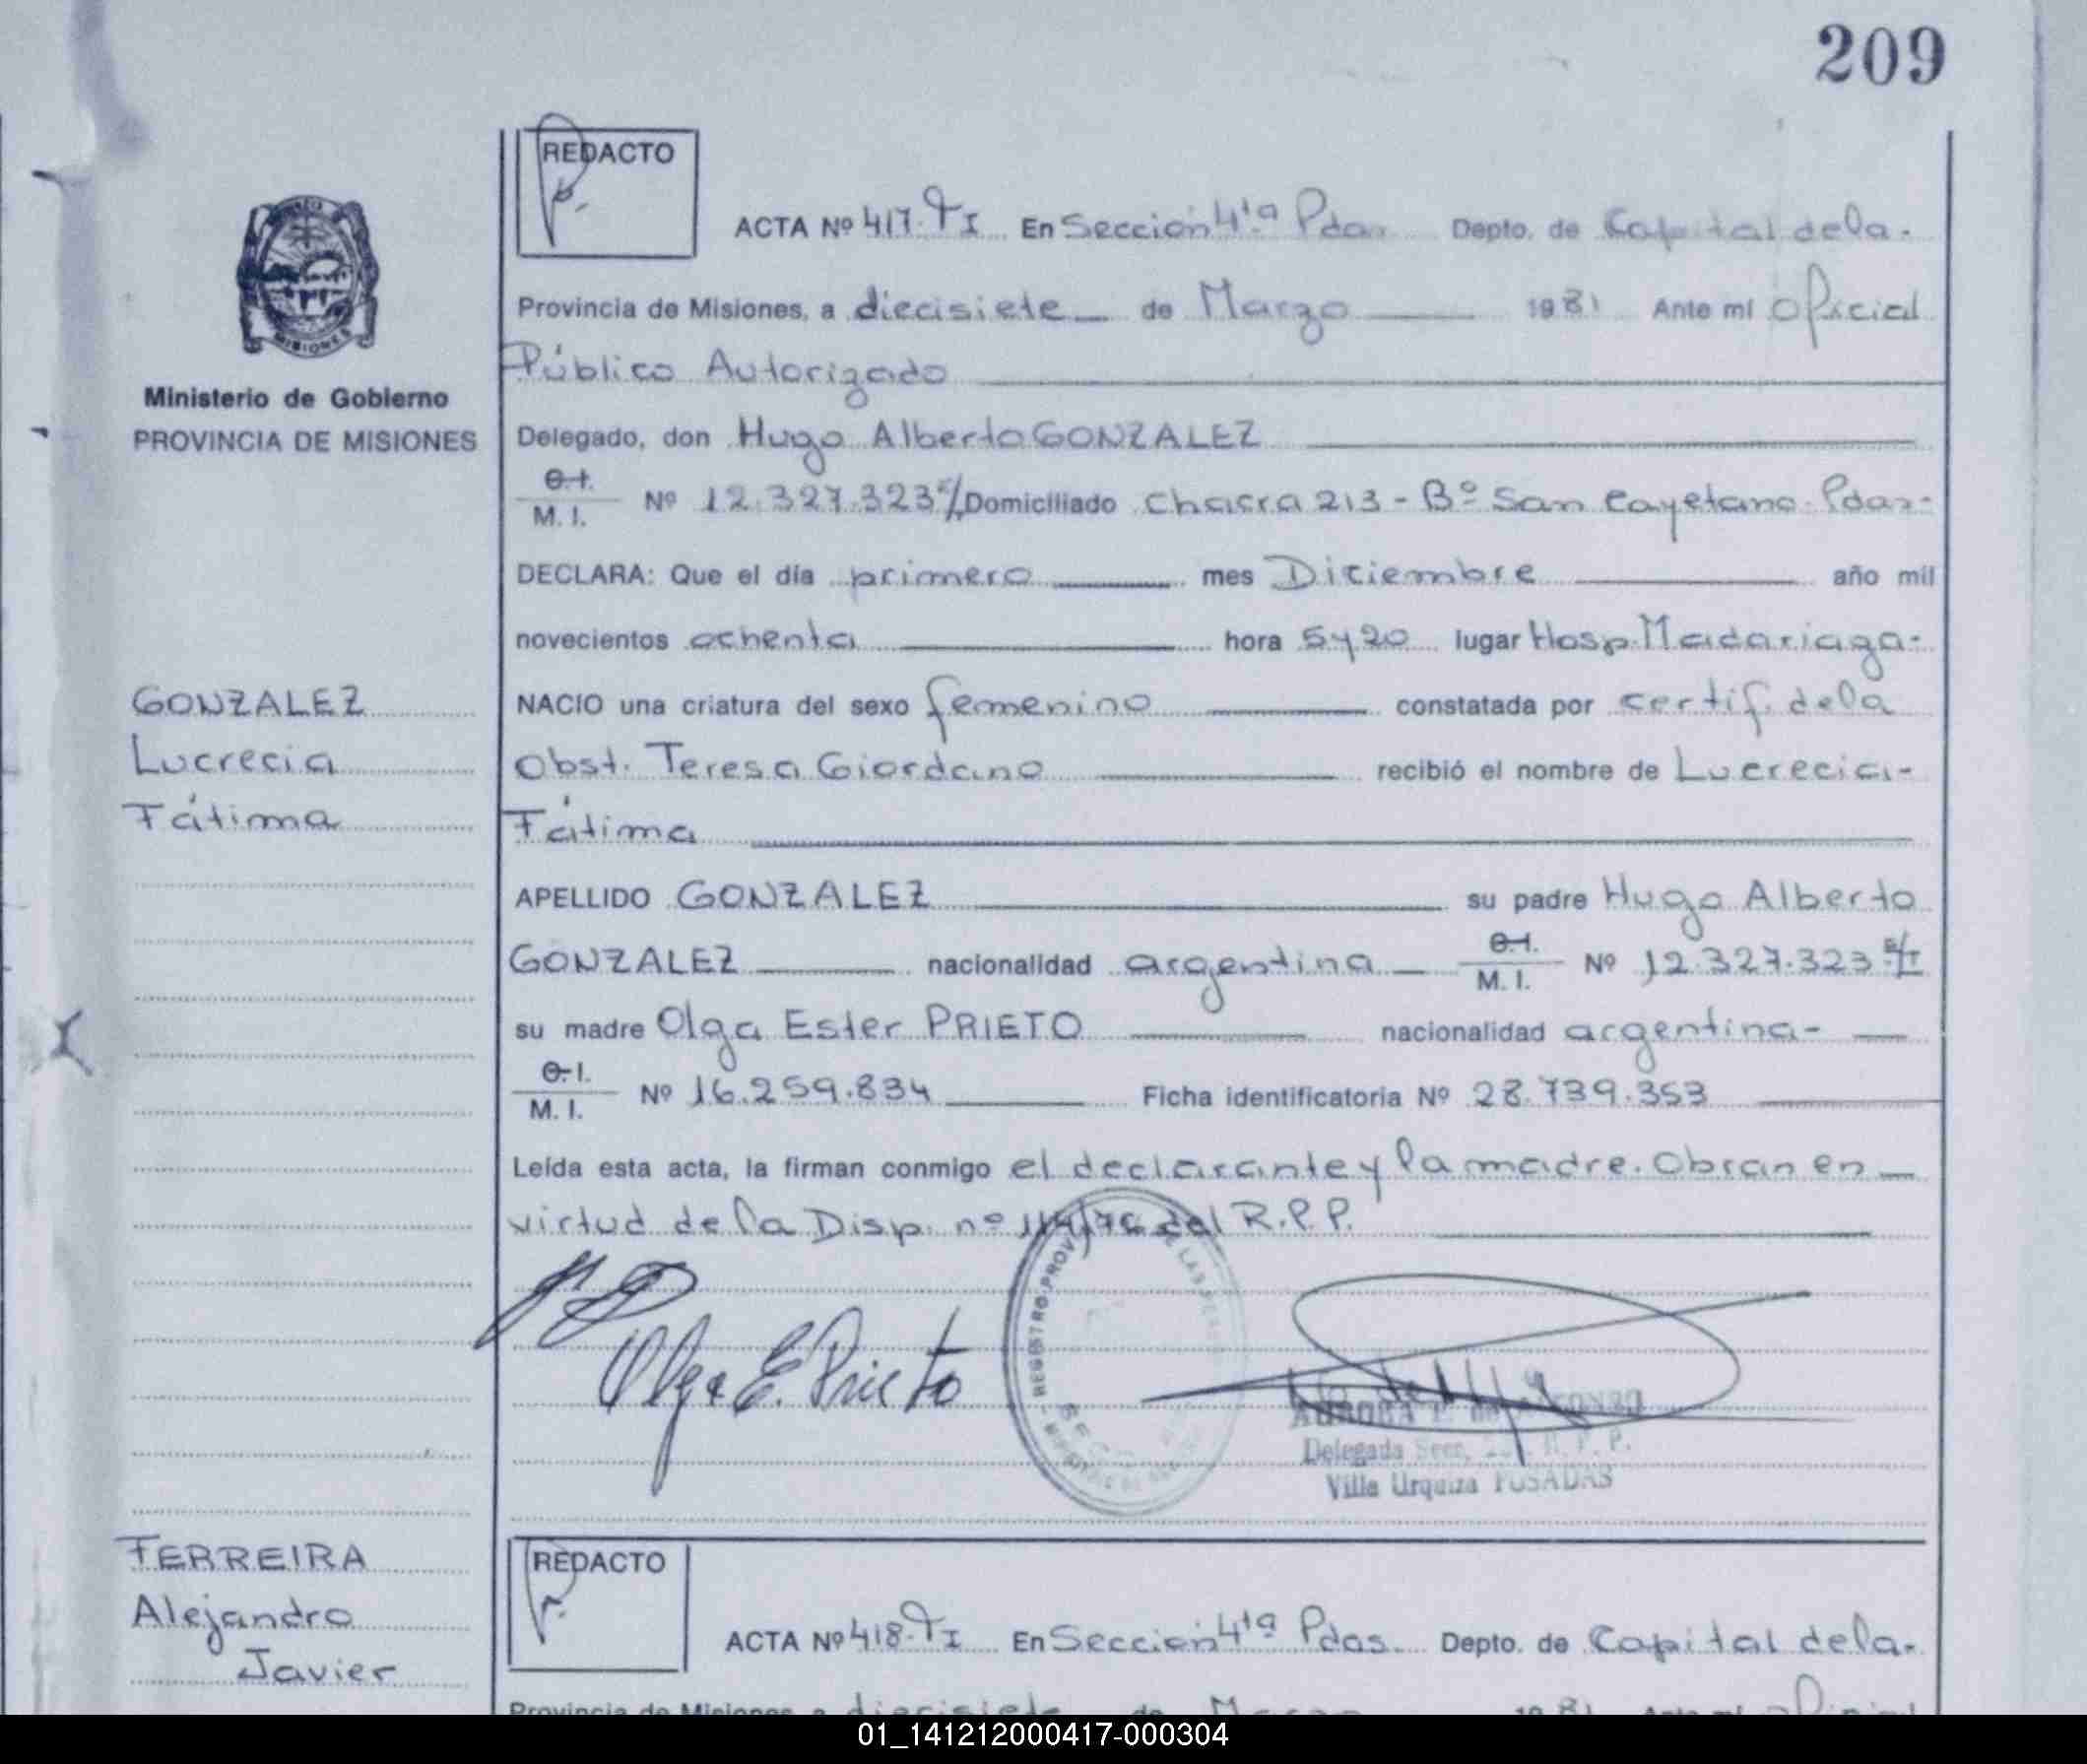 209
REDACTO
ACTA Nº 417. TI En Sección 4ta Pdas. Depto. de Capital dela.
MISIONES
Provincia de Misiones, a diecisiete de Marzo 1981 Ante mí Oficial
Público Autorizado
Ministerio de Gobierno
PROVINCIA DE MISIONES
Delegado, don Hugo Alberto GONZALEZ
C.I.
M. I. Nº 12.327.323 Domiciliado Chacra 213 - Bº San Cayetano. Pdas-
DECLARA: Que el día primero mes Diciembre año mil
novecientos ochenta hora 5y20 lugar Hosp. Madariaga-
GONZALEZ
Lucrecia
Fátima
NACIO una criatura del sexo femenino constatada por certif. dela
Obst. Teresa Giordano recibió el nombre de Lucrecia-
Fátima
APELLIDO GONZALEZ su padre Hugo Alberto
GONZALEZ nacionalidad argentina C.I.
M. I. Nº 12.327.323
su madre Olga Ester PRIETO nacionalidad argentina-
C.I.
M. I. Nº 16.259.834 Ficha identificatoria Nº 28.739.353
Leída esta acta, la firman conmigo el declarante y la madre. Obran en
virtud de la Disp. nº 114/76 del R.P.P.
Olga E. Prieto
REGISTRO PROV DE LAS
Delegada R. P. P.
Villa Urquiza POSADAS
FERREIRA
Alejandro
Javier
REDACTO
ACTA Nº 418. TI En Sección 4ta Pdas. Depto. de Capital dela.
Provincia de Misiones a diecisiete de Marzo 1981 Ante mí Oficial
01_141212000417-000304